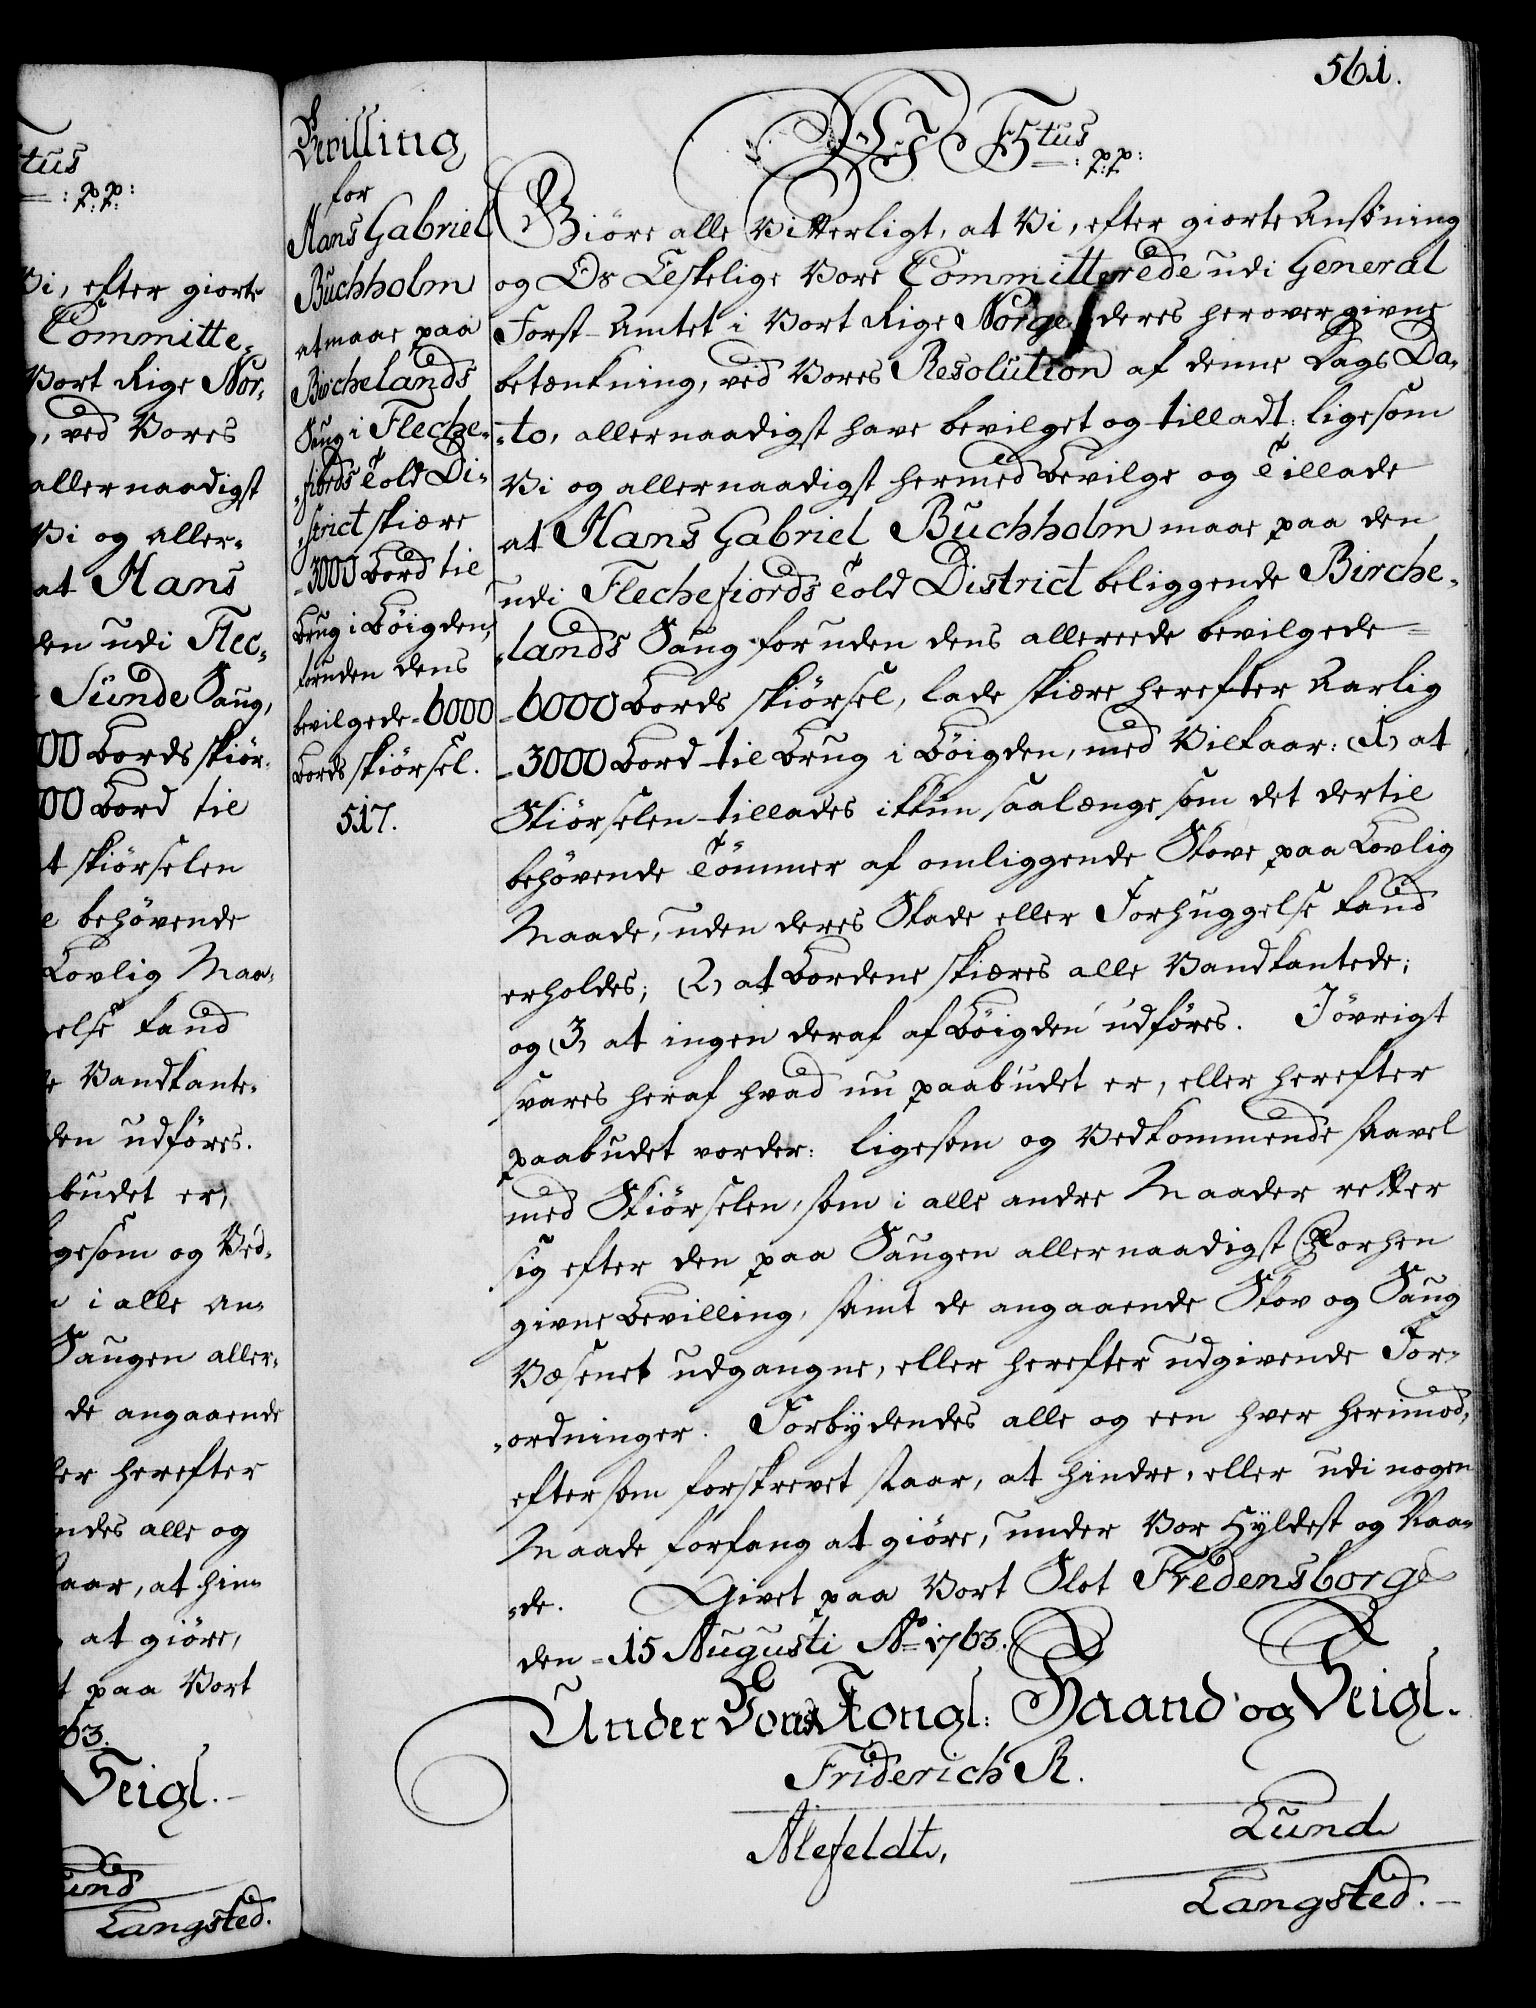 tus
: p:p:
Vi, efter giorte
Committe-
Vort Rige Nor-
, ved Vores
allernaadigst
Vi og aller-
at Hans
den udi Flec-
Sunde Saug,
00 Bords skiør-
00 Bord til
t skiørselen
e behøvende
Lovlig Maa-
else kand
e Vandkante-
den udføres.
budet er,
igesom og Ved-
i alle an-
Saugen aller-
de angaaende
ler herefter
endes alle og
staar, at hin-
at giøre,
t paa Vort
63.
Seigl.
Lund
Langsted.
Bevilling
for
Hans Gabriel
Buchholm
at maae paa
Birchelands
Saug i Fleche-
-fiords Told Di-
-strict skiære
-3000 Bord til
Brug i Bøigden,
foruden dens
bevilgede - 6000
Bords skiørsel.
517.
561.
F 5tus : p:p:
Giøre alle Vitterligt, at Vi, efter giorte Ansøning
og Os Elskelige Vore Committerede udi General
Forst-Amtet i Vort Rige Norge deres herover givne
betænkning, ved Vores Resolution af denne Dags Da-
-to, allernaadigst have bevilget og tilladt: ligesom
Vi og allernaadigst hermed Bevilge og Tillade
at Hans Gabriel Buchholm maae paa den
udi Flechefiords Told District beliggende Birche-
-lands Saug foruden dens allereede bevilgede
-6000 Bords skiørsel, lade skiære herefter Aarlig
-3000 Bord til Brug i Bøigden, med Vilkaar: (1) at
Skiørselen tillades ikkun saalænge som det dertil
behøvende Tømmer af omliggende Skove paa Lovlig
Maade, uden deres Skade eller Forhuggelse kand
erholdes; (2) at Bordene skiæres alle Vandkantede;
og (3) at ingen deraf af Bøigden udføres. Iøvrigt
svares heraf hvad nu paabudet er, eller herefter
paabudet vorder: ligesom og Vedkommende saavel
med Skiørselen, som i alle andre Maader retter
sig efter den paa Saugen allernaadigst forhen
givne Bevilling, samt de angaaende Skov og Saug
Væsenet udgangne, eller herefter udgivende For-
-ordninger. Forbydendes alle og een hver herimod,
eftersom forskrevet staar, at hindre, eller udi nogen
Maade forfang at giøre, under Vor Hyldest og Naa-
-de. Givet paa Vort Slot Fredensborg
den - 15 Augusti Ao 1763.
Under Vor Kongl: Haand og Seigl.
Friderich R.
Lund
Alefeldt,
Langsted.